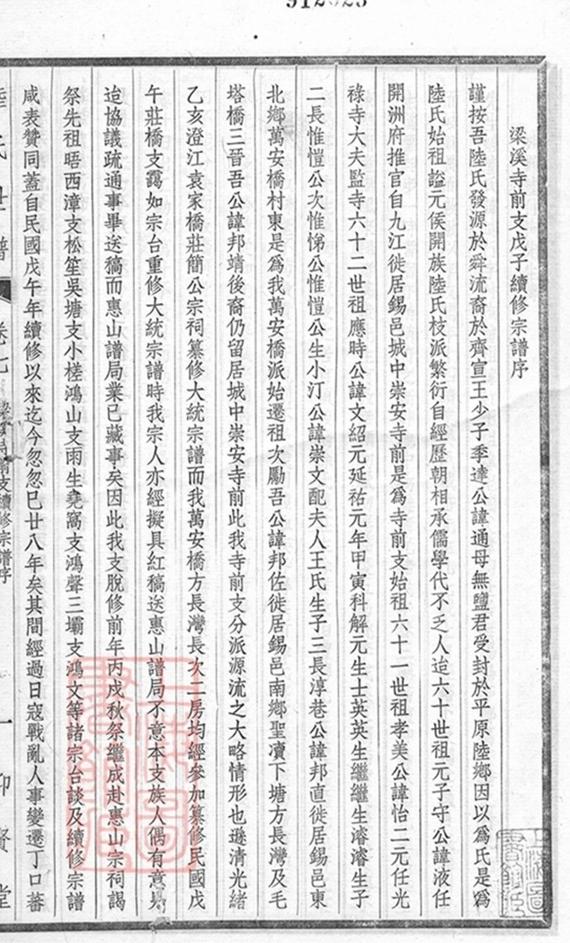 梁溪寺前支戊子續修宗譜序
謹按吾陸氏發源於舜流裔於齊宣王少子季達公諱通母無鹽君受封於平原陸鄉因以爲氏是爲
陸氏始祖謚元侯開族陸氏枝派繁衍自經歷朝相承儒學代不乏人迨六十世祖元子守公諱液任
開洲府推官自九江徙居錫邑城中崇安寺前是爲寺前支始祖六十一世祖孝美公諱怡二元任光
祿寺大夫監寺六十二世祖應時公諱文紹元延祐元年甲寅科解元生士英英生繼繼生濬濬生子
二長惟愷公次惟悌公惟愷公生小汀公諱崇文配夫人王氏生子三長淳巷公諱邦直徙居錫邑東
北鄉萬安橋村東是爲我萬安橋派始遷祖次勵吾公諱邦佐徙居錫邑南鄉聖瀆下塘方長灣及毛
塔橋三晉吾公諱邦靖後裔仍留居城中崇安寺前此我寺前支分派源流之大略情形也遜清光緒
乙亥澄江袁家橋莊簡公宗祠纂修大統宗譜而我萬安橋方長灣長次二房均經參加纂修民國戊
午莊橋支靄如宗台重修大統宗譜時我宗人亦經擬具紅稿送惠山譜局不意本支族人偶有意見
迨協議疏通事畢送稿而惠山譜局業已蕆事矣因此我支脫修前年丙戌秋祭繼成赴惠山宗祠謁
祭先祖晤西漳支松笙吳塘支小槎鴻山支雨生堯窩支鴻聲三壩支鴻文等諸宗台談及續修宗譜
咸表贊同蓋自民國戊午年續修以來迄今忽忽已廿八年矣其間經過日寇戰亂人事變遷丁口蕃
陸氏世譜 卷七 續修宗譜序 一 仰賢堂